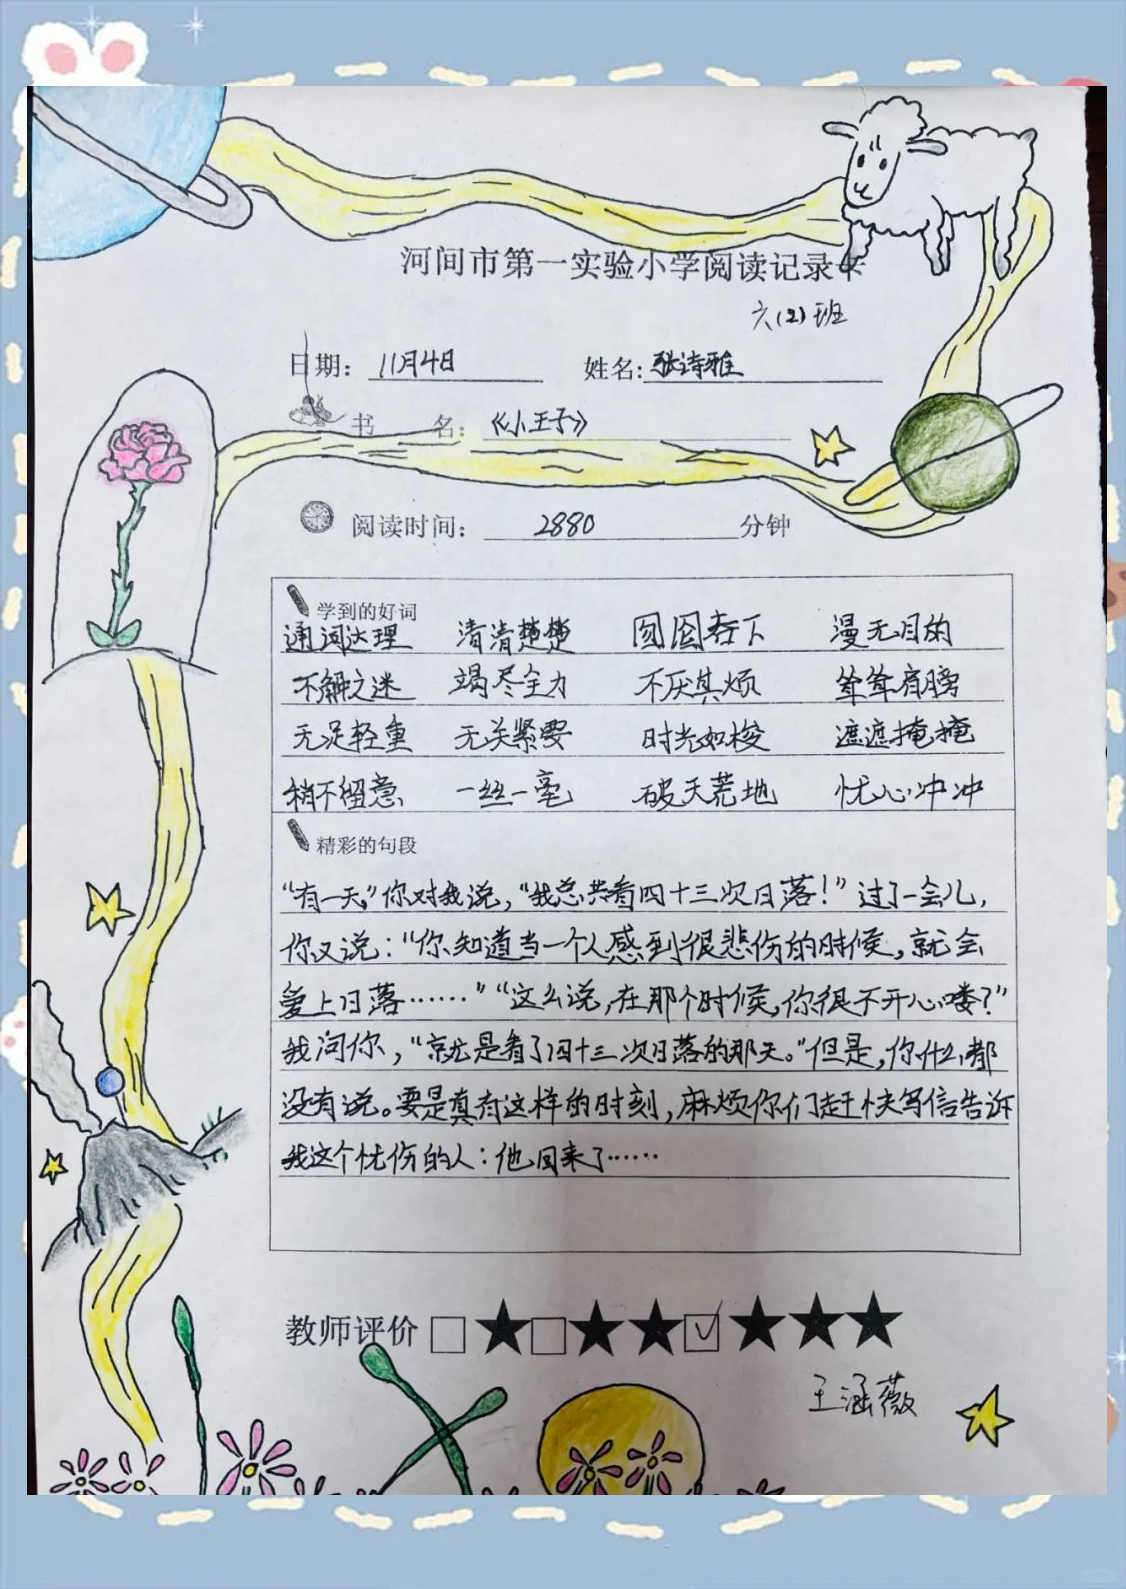 河间市第一实验小学阅读记录卡
六(2)班
日期：11月4日 姓名:张诗雅
书 名：《小王子》
阅读时间：2880分钟
学到的好词
通词达理 清清楚楚 囫囵吞下 漫无目的
不解之迷 竭尽全力 不厌其烦 耸耸肩膀
无足轻重 无关紧要 时光如梭 遮遮掩掩
稍不留意 一丝一毫 破天荒地 忧心冲冲
精彩的句段
“有一天”你对我说，“我总共看四十三次日落！”过了一会儿，
你又说：“你知道当一个人感到很悲伤的时候，就会
爱上日落……”“这么说，在那个时候，你很不开心喽？”
我问你，“就是看了四十三次日落的那天。”但是，你什么都
没有说。要是真有这样的时刻，麻烦你们赶快写信告诉
我这个忧伤的人：他回来了……
教师评价 □★□★★☑★★★
王涵薇